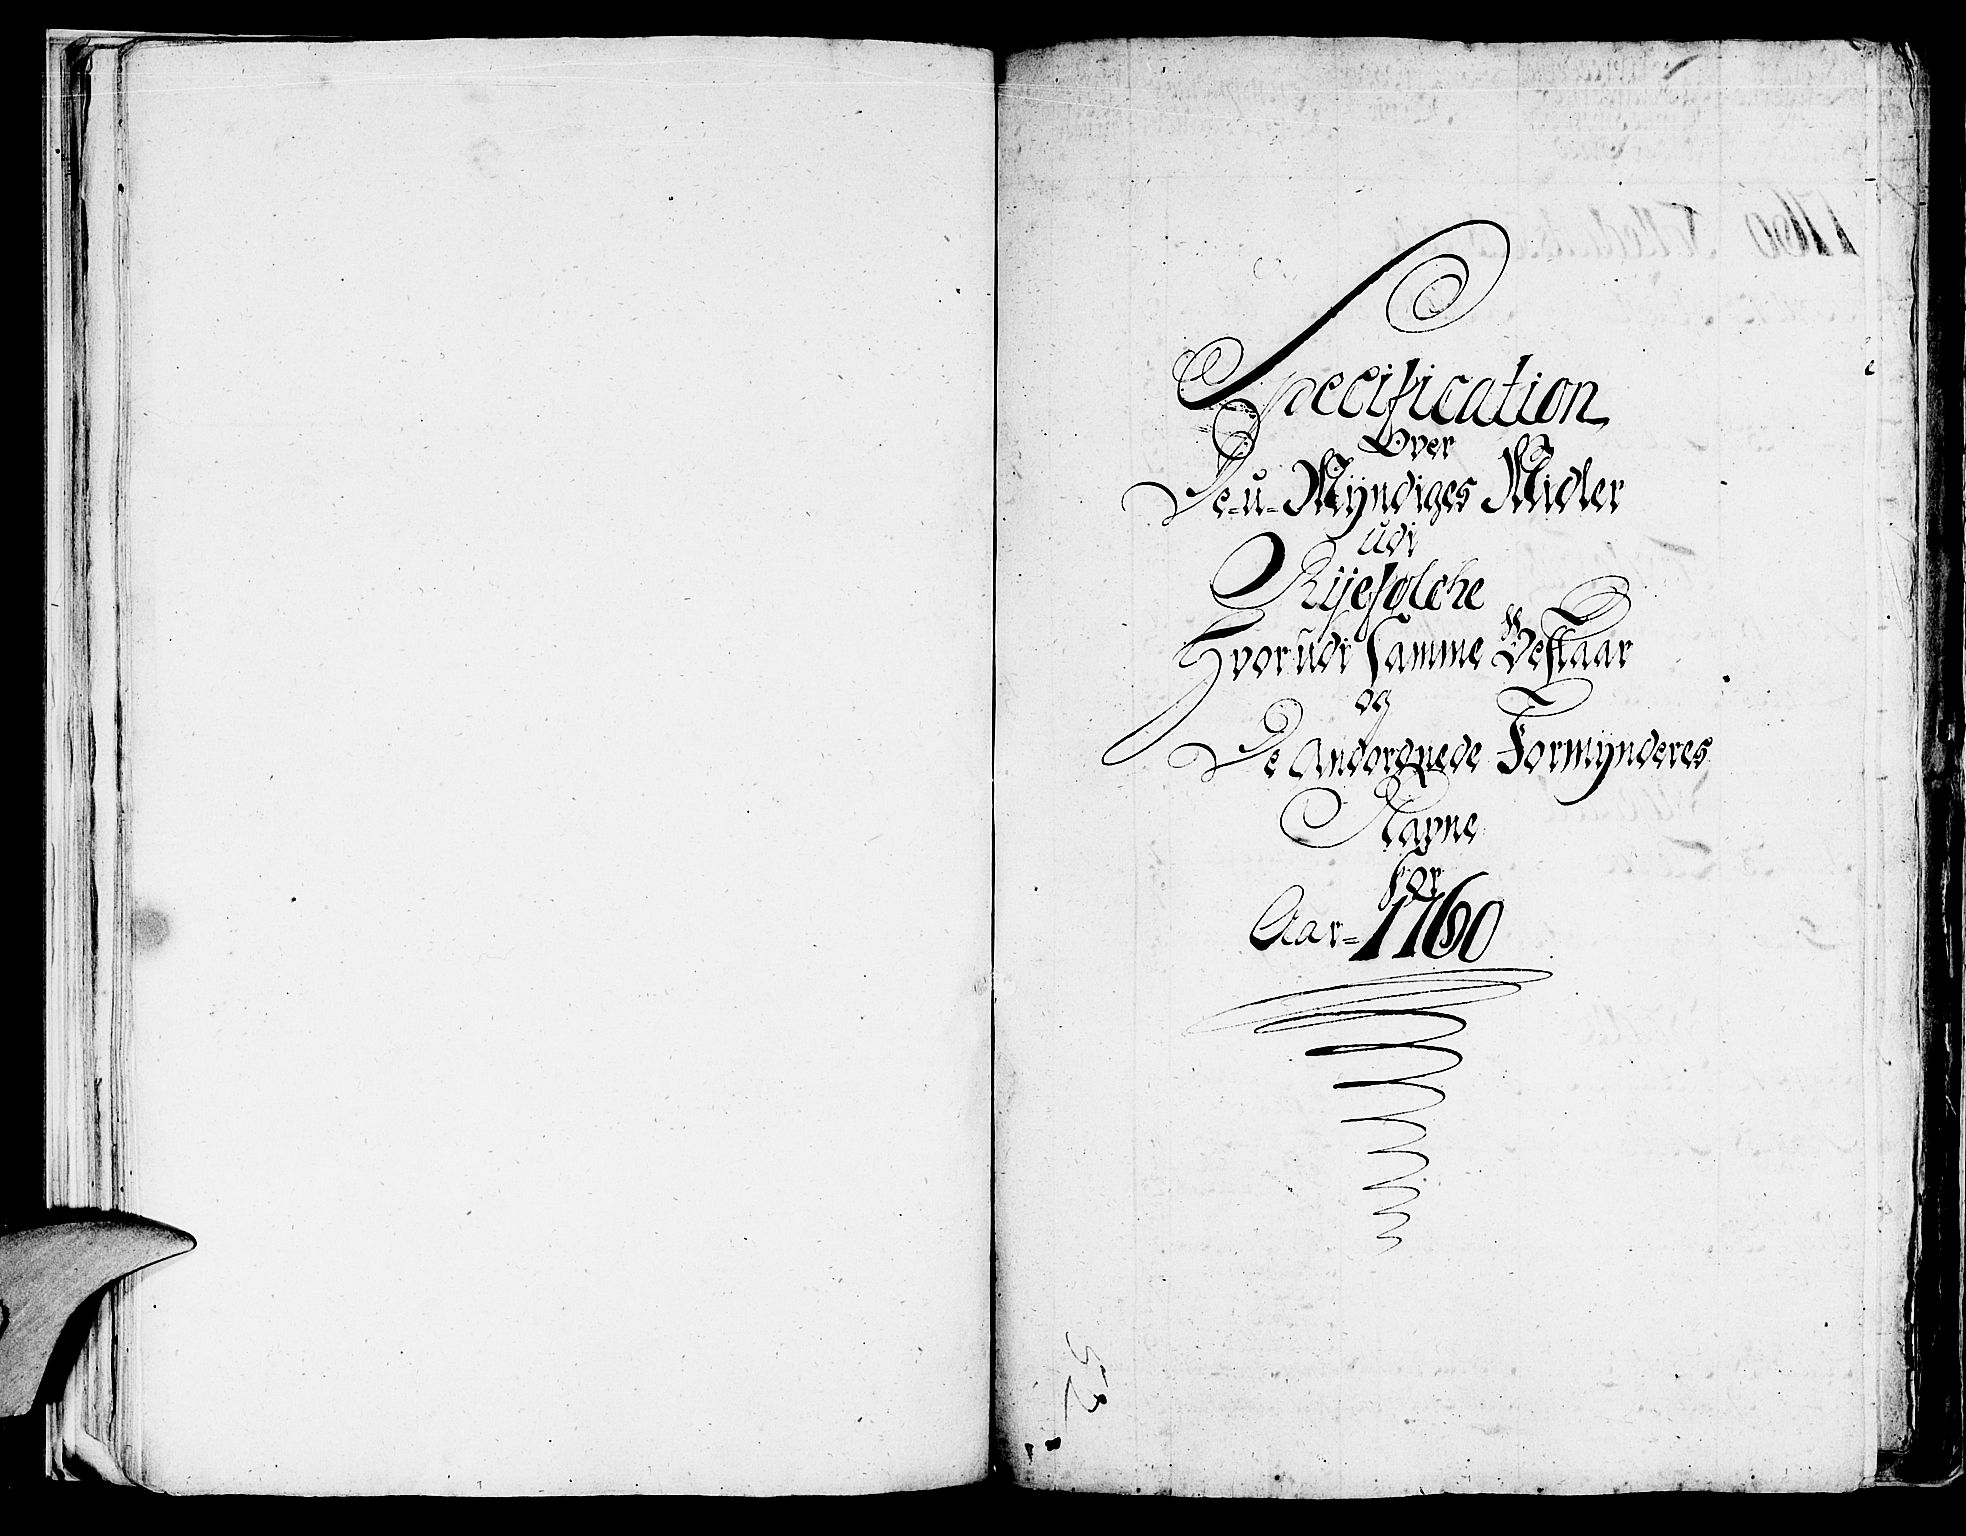 Specification
Over
De-u-Myndiges Midler
udi
Ryefylche
Hvorudi Samme Bestaar
og
De Andordnede Formynderes
Navne
for
Aar=1760